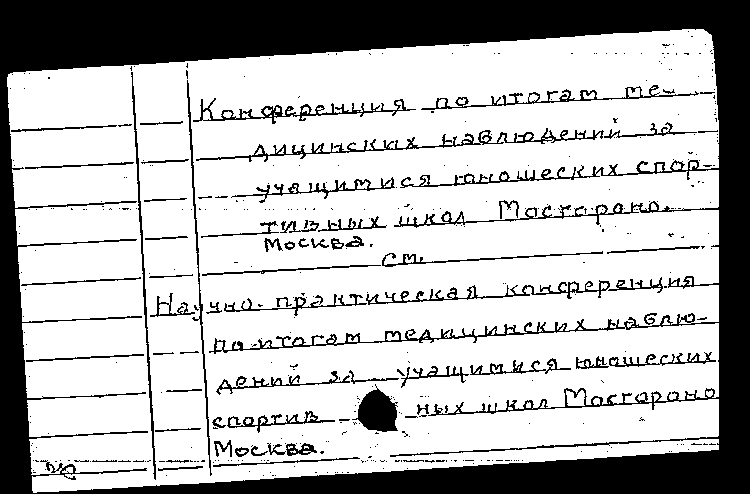 Конференция по итогам ме-
дицинских наблюдений за
учащимися юношеских спор-
тивных школ Мосгороно.
Москва.
см.
Научно-практическая конференция
по итогам медицинских наблю-
дений за учащимися юношеских
спортив ных школ Мосгороно
Москва.